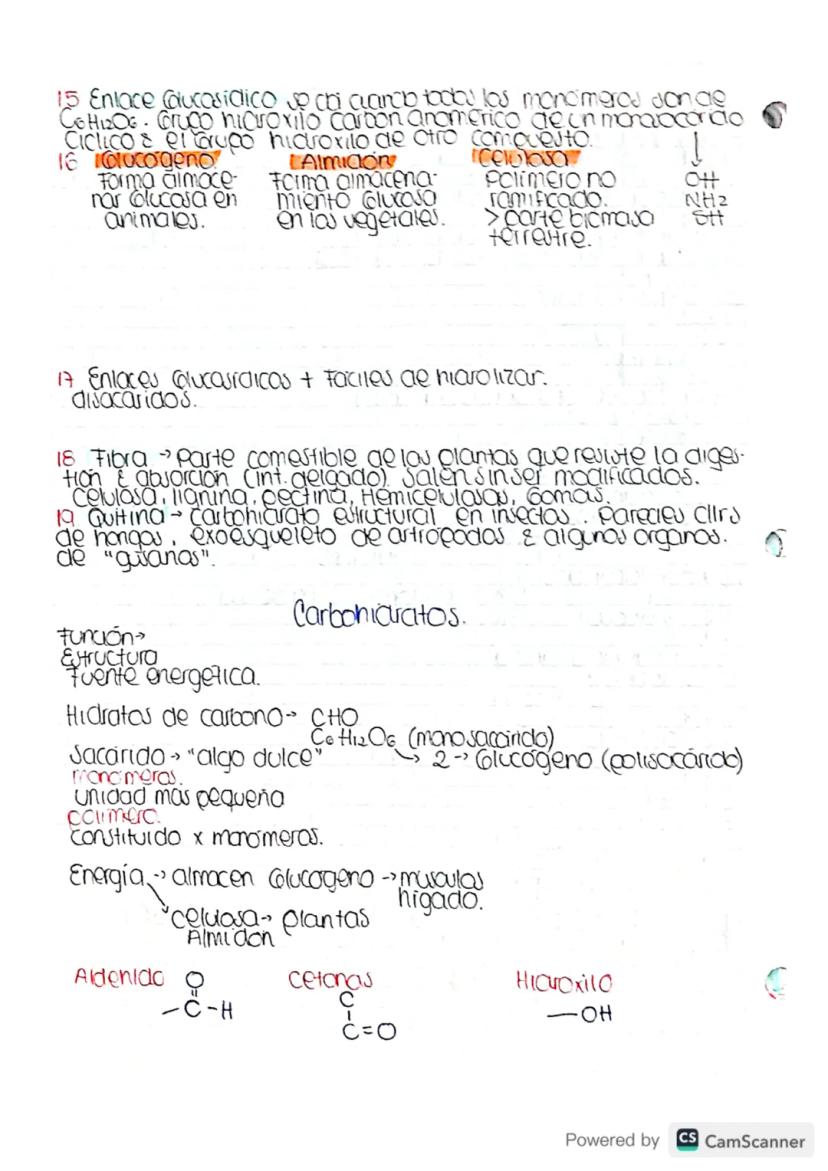 15 Enlace Glucosídico se da cuando todos los monómeros son de
C6H12O6. Grupo hidroxilo carbon anomérico de un monosacárido
Cíclico & el Grupo hidroxilo de otro compuesto.
16 Glucógeno Almidón Celulosa
Forma almace- Forma almacena- Polímero no OH
nar Glucosa en miento Glucosa ramificado. NH2
animales. en los vegetales. > parte biomasa SH
terrestre.
17 Enlaces Glucosídicos + Faciles de hidrolizar.
disacáridos.
18 Fibra → Parte comestible de las plantas que resiste la diges-
tión & absorción (int. delgado) salen sin ser modificados.
Celulosa, lignina, pectina, Hemicelulosas, Gomas.
19 Quitina → Carbohidrato estructural en insectos. Paredes
de hongos, exoesqueleto de artrópodos & algunos organos.
de "gusanos".
Carbohidratos.
Función→
Estructura
Fuente energetica.
Hidratos de carbono→ CHO
C6H12O6 (monosacárido)
Sacárido → "algo dulce" ↳ 2 → Glucógeno (polisacárido)
monómeros.
Unidad más pequeña
polímero.
Constituido x monómeros.
Energía → almacen Glucogeno → musculos
higado.
celulosa → plantas
Almidon
Aldehido Cetonas Hidroxilo
O C
– C – H — OH
C = O
Powered by CS CamScanner